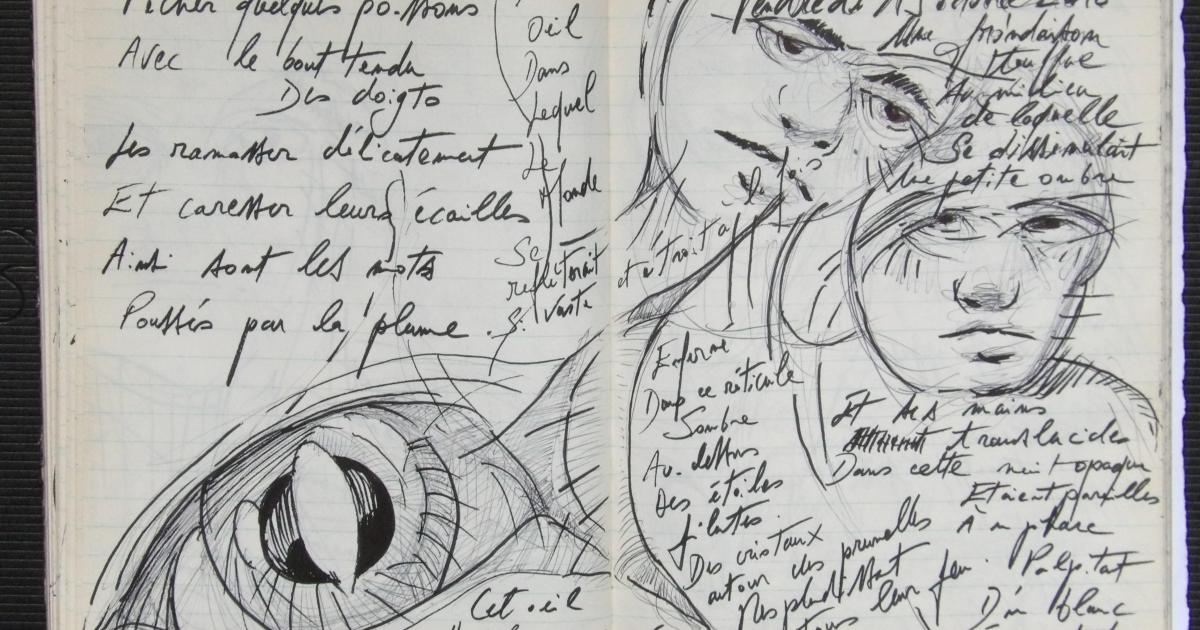 Pêcher quelques poissons
Avec le bout tendu
Des doigts
Les ramasser délicatement
Et caresser leurs écailles
Ainsi sont les mots
Poussés par la plume.
Oeil
Dans
Lequel
Le
Monde
Se
vaste
Cet oeil
Vendredi
Une
Au milieu
de laquelle
Se dissimulait
Une petite ombre
Enfermé
Dans ce réticule
Sombre
Au-dessus
Des étoiles
Des cristaux
autour des prunelles
Resplendissant
leur feu.
Et ses mains
translucides
Dans cette nuit opaque
Etaient pareilles
À un phare
Palpitat
D'un blanc